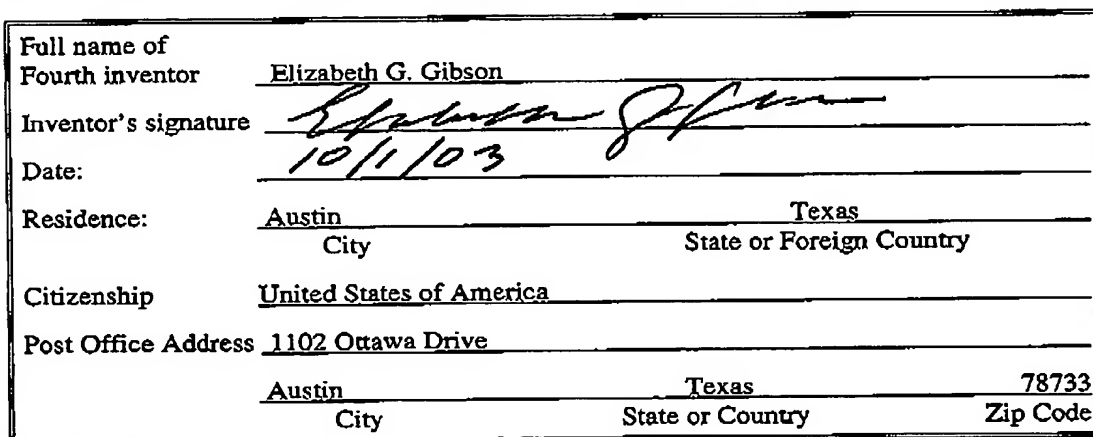 Full name of
Fourth inventor Elizabeth G. Gibson
Inventor's signature
Date: 10/1/03
Residence: Austin Texas
City State or Foreign Country
Citizenship United States of America
Post Office Address 1102 Ottawa Drive
Austin Texas 78733
City State or Country Zip Code